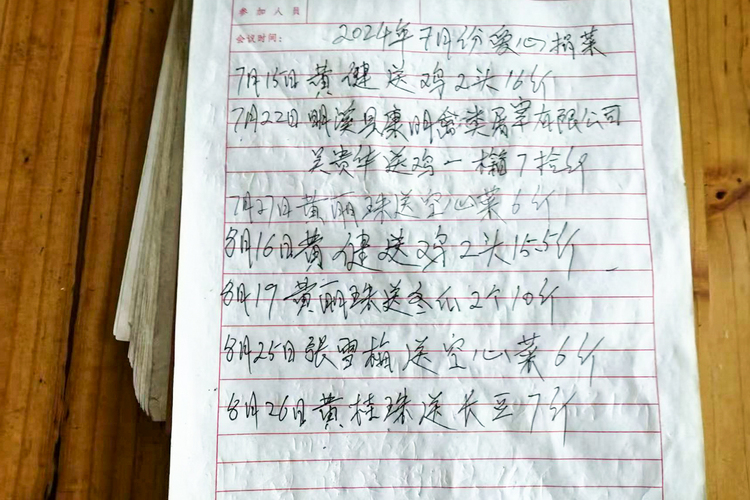 参加人员
会议时间：
2024年7月份爱心捐菜
7月15日黄健送鸡2头16斤
7月22日明溪县康明禽类屠宰有限公司
吴贵华送鸡一箱7拾斤
7月27日黄丽珠送空心菜6斤
8月16日黄健送鸡2头15.5斤
8月19黄丽珠送冬瓜2个10斤
8月25日張雪梅送空心菜6斤
8月26日黄桂珠送长豆7斤